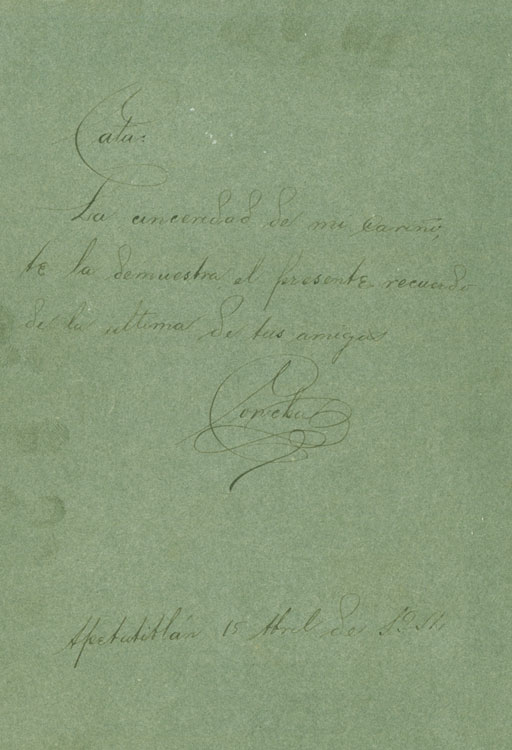 Cata:
La cinceridad de mi cariño,
te la demuestra el presente recuerdo
de la ultima de tus amigas
Concha
Apetatitlán 15 Abril de 1911.